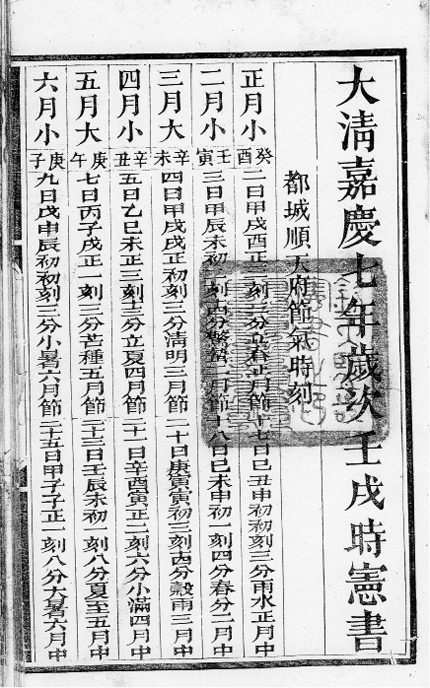 大清嘉慶七年歲次壬戌時憲書
都城順天府節氣時刻
正月小 癸酉 二日甲戌酉正 刻 分立春正月節 十七日己丑申初初刻三分雨水正月中
二月小 壬寅 三日甲辰未初 刻 分驚蟄二月節 十八日己未申初一刻四分春分二月中
三月大 辛未 四日甲戌戌正初刻三分清明三月節 二十日庚寅寅初三刻十四分穀雨三月中
四月小 辛丑 五日乙巳未正三刻十三分立夏四月節 二十一日辛酉寅正二刻六分小滿四月中
五月大 庚午 七日丙子戌正一刻三分芒種五月節 二十三日壬辰未初一刻八分夏至五月中
六月小 庚子 九日戊申辰初初刻三分小暑六月節 二十五日甲子子正一刻八分大暑六月中